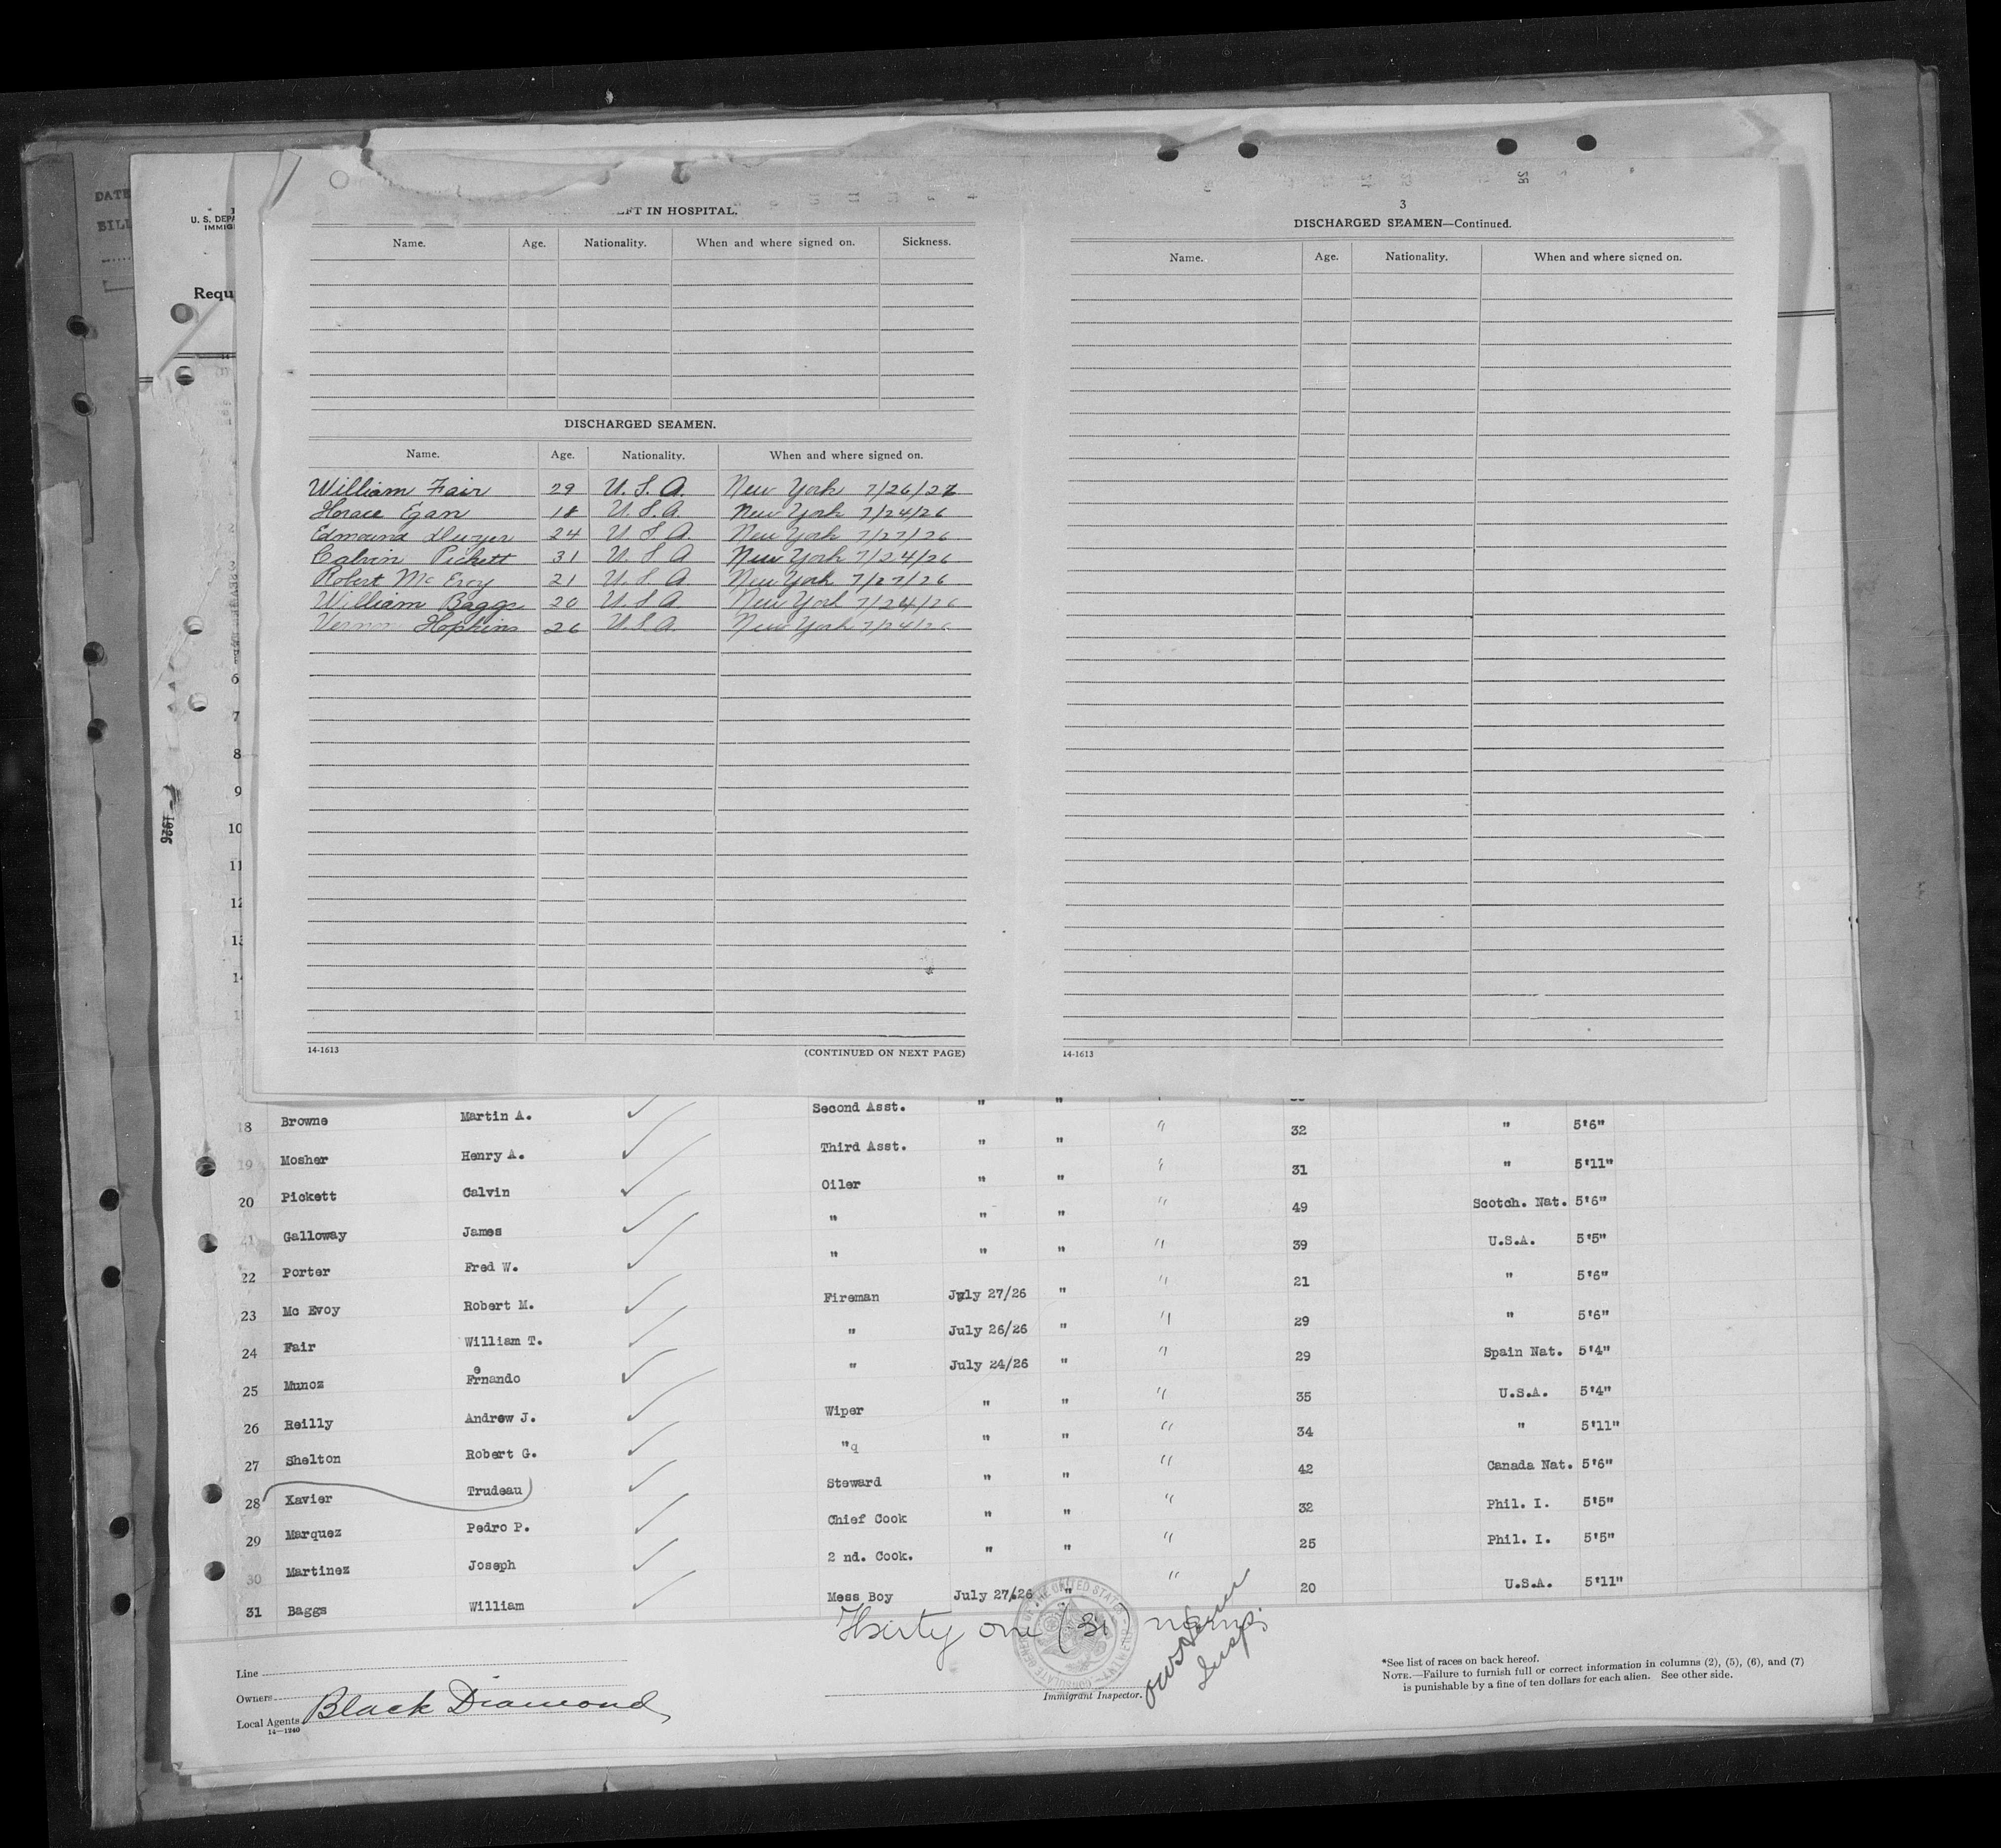 DATE
BILL
U. S. DEPA
IMMIG
Requ
LEFT IN HOSPITAL.
Name. Age. Nationality. When and where signed on. Sickness.
DISCHARGED SEAMEN.
Name. Age. Nationality. When and where signed on.
William Fair 29 U. S. A. New York 7/26/27
Horace Egan 18 U. S. A. New York 7/24/26
Edmound Dwyer 24 U S A. New York 7/27/26
Calvin Pickett 31 U. S A New York 7/24/26
Robert Mc Evoy 21 U. S. A. New York 7/27/26
William Baggs 20 U. S A. New York 7/24/26
Vernon Hopkins 26 U.S A. New York 7/24/26
14-1613 (CONTINUED ON NEXT PAGE)
3
DISCHARGED SEAMEN—Continued.
Name. Age. Nationality. When and where signed on.
14-1613
6
7
8
9
10
11
12
13
14
1926
18 Browne Martin A. Second Asst. " " " 32 " 5'6"
19 Mosher Henry A. Third Asst. " " " 31 " 5'11"
20 Pickett Calvin Oiler " " " 49 Scotch. Nat. 5'6"
21 Galloway James " " " " 39 U.S.A. 5'5"
22 Porter Fred W. " " " " 21 " 5'6"
23 Mc Evoy Robert M. Fireman July 27/26 " " 29 " 5'6"
24 Fair William T. " July 26/26 " " 29 Spain Nat. 5'4"
25 Munoz Fernando " July 24/26 " " 35 U.S.A. 5'4"
26 Reilly Andrew J. Wiper " " " 34 " 5'11"
27 Shelton Robert G. "q " " " 42 Canada Nat. 5'6"
28 Xavier Trudeau Steward " " " 32 Phil. I. 5'5"
29 Marquez Pedro P. Chief Cook " " " 25 Phil. I. 5'5"
30 Martinez Joseph 2 nd. Cook. " " " 20 U.S.A. 5'11"
31 Baggs William Mess Boy July 27/26 "
Thirty one (31) names
Insp.
Line
Owners
Local Agents Black Diamond
14—1240
Immigrant Inspector.
*See list of races on back hereof.
NOTE.—Failure to furnish full or correct information in columns (2), (5), (6), and (7)
is punishable by a fine of ten dollars for each alien. See other side.